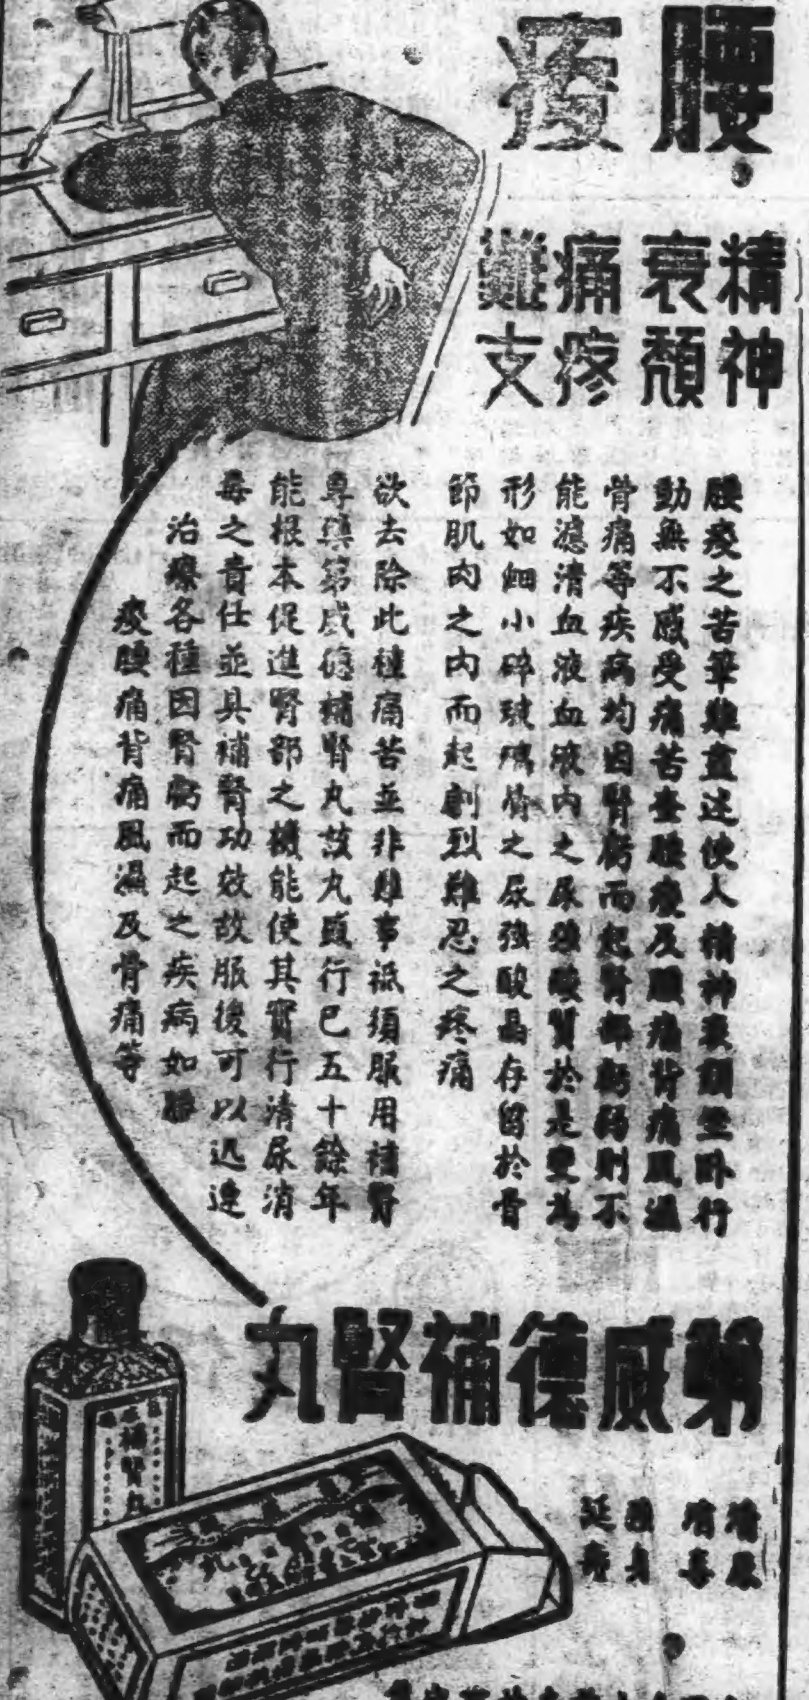 腰痠
精神
衰頹
痛疼
難支
腰痠之苦筆難直述使人精神衰頹坐臥行
動無不感受痛苦查腰痠及腰痛背痛風濕
骨痛等疾病均因腎虧而起腎部虧弱則不
能濾清血液血液內之尿強酸質於是變為
形如細小碎玻璃屑之尿強酸晶存留於骨
節肌肉之內而起劇烈難忍之疼痛
欲去除此種痛苦並非難事祇須服用補腎
專藥第威德補腎丸故丸通行已五十餘年
能根本促進腎部之機能使其實行清尿消
毒之責任並具補腎功效故服後可以迅速
治療各種因腎虧而起之疾病如腰
痠腰痛背痛風濕及骨痛等
第威德補腎丸
補腎丸
清尿
消毒
強身
延壽